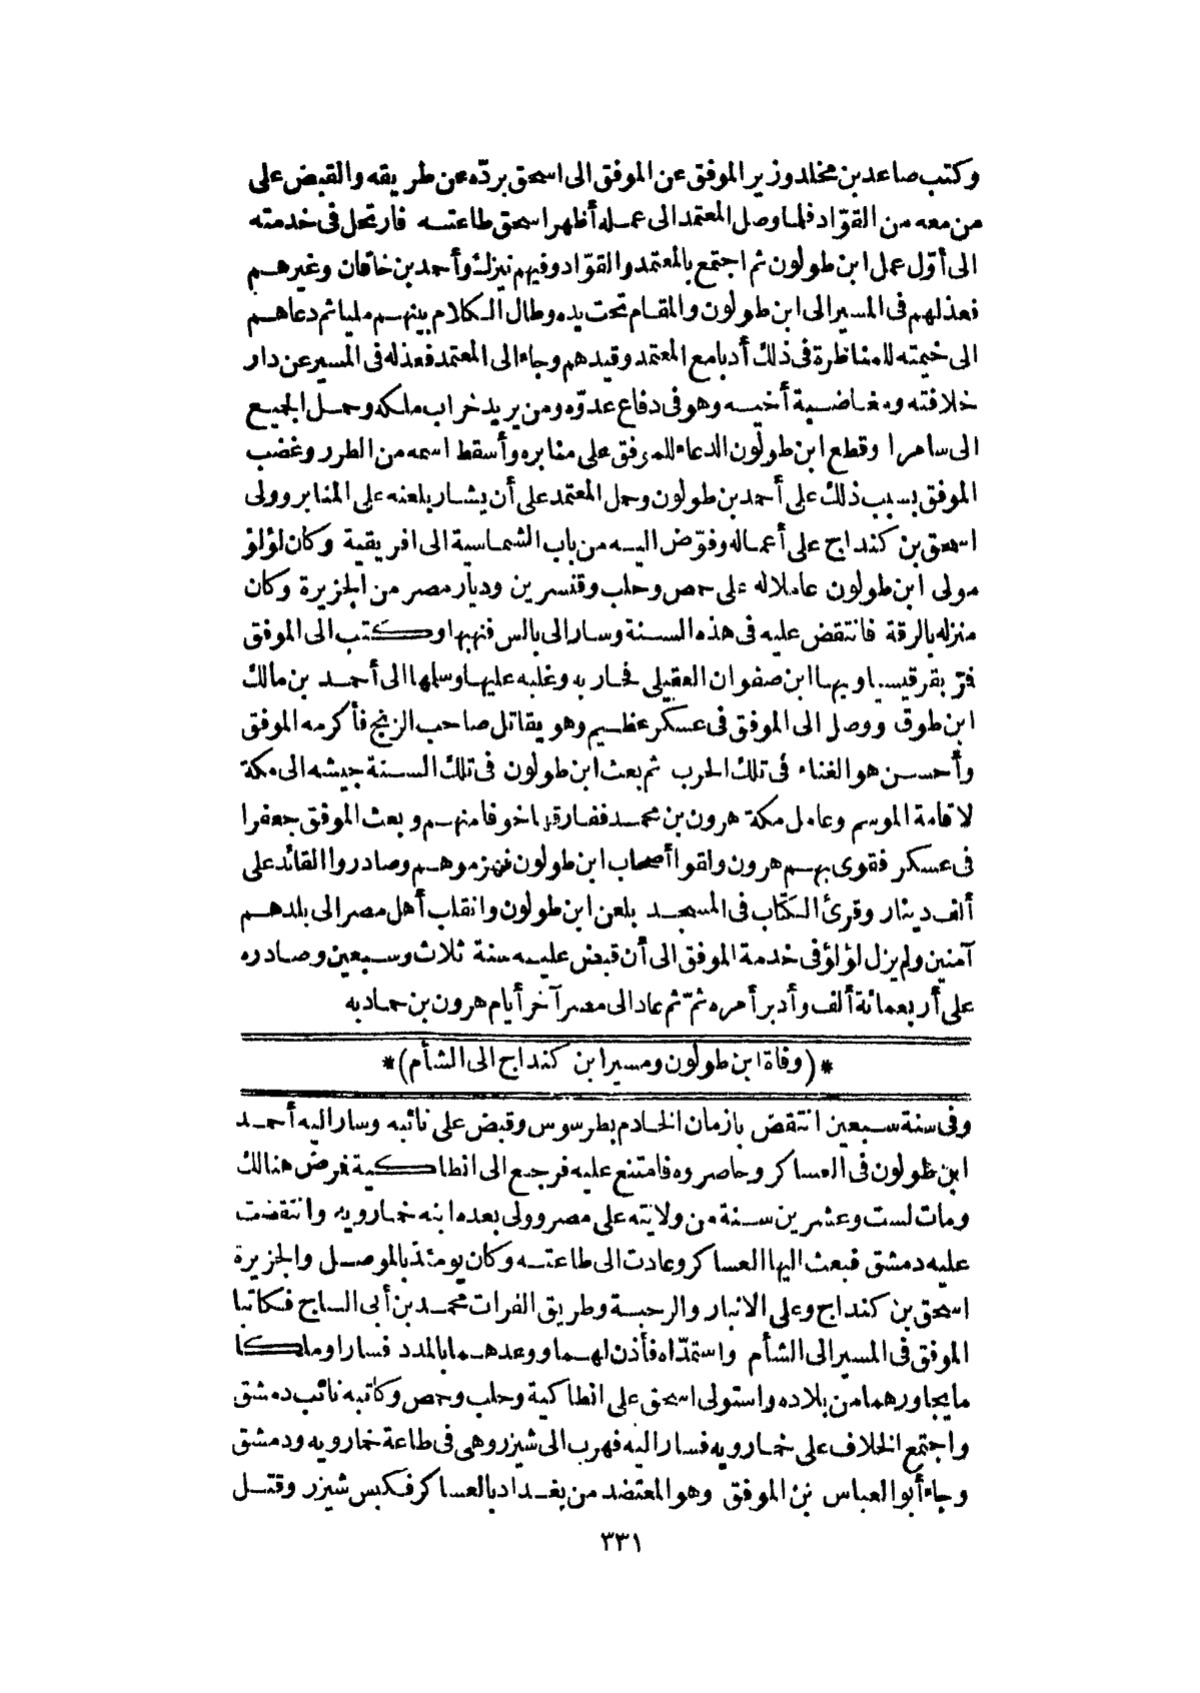 وكتب صاعد بن مخلد وزير الموفق عن الموفق الى اسحق بردّه عن طريقه والقبض على
من معه من القوّاد فلما وصل المعتمد الى عمله أظهر اسحق طاعته فارتحل فى خدمته
الى أوّل عمل ابن طولون ثم اجتمع بالمعتمد والقوّاد وفيهم نيزك وأحمد بن خاقان وغيرهم
فعذلهم فى المسير الى ابن طولون والمقام تحت يده وطال الكلام بينهم مليا ثم دعاهم
الى خيمته للمناظرة فى ذلك أدبا مع المعتمد وقيدهم وجاء الى المعتمد فعذله فى المسير عن دار
خلافته ومغاضبة أخيه وهو فى دفاع عدوّه ومن يريد خراب ملكه وحمل الجميع
الى سامرا وقطع ابن طولون الدعاء للموفق على منابره وأسقط اسمه من الطرر وغضب
الموفق بسبب ذلك على أحمد بن طولون وحمل المعتمد على أن يشار بلعنه على المنابر وولى
اسحق بن كنداج على أعماله وفوّض اليه من باب الشماسية الى افريقية وكان لؤلؤ
مولى ابن طولون عاملا له على حمص وحلب وقنسرين وديار مصر من الجزيرة وكان
منزله بالرقة فانتقض عليه فى هذه السنة وسار الى بالس فنهبها وكتب الى الموفق
فمرّ بقرقيسيا وبها ابن صفوان العقيلى فحاربه وغلبه عليها وسلمها الى أحمد بن مالك
ابن طوق ووصل الى الموفق فى عسكر عظيم وهو يقاتل صاحب الزنج فأكرمه الموفق
وأحسن هو الغناء فى تلك الحرب ثم بعث ابن طولون فى تلك السنة جيشه الى مكة
لاقامة الموسم وعامل مكة هرون بن محمد ففارقها خوفا منهم وبعث الموفق جعفرا
فى عسكر فقوى بهم هرون ولقوا أصحاب ابن طولون فهزموهم وصادروا القائد على
ألف دينار وقرئ الكتاب فى المسجد بلعن ابن طولون وانقلب أهل مصر الى بلدهم
آمنين ولم يزل لؤلؤ فى خدمة الموفق الى أن قبض عليه سنة ثلاث وسبعين وصادره
على أربعمائة ألف وأدبر أمره ثمّ ثم عاد الى مصر آخر أيام هرون بن حمادبه
*(وفاة ابن طولون ومسير ابن كنداج الى الشأم)*
وفى سنة سبعين انتقض بازمان الخادم بطرسوس وقبض على نائبه وسار اليه أحمد
ابن طولون فى العساكر وحاصروه فامتنع عليه فرجع الى انطاكية فمرض هنالك
ومات لست وعشرين سنة من ولايته على مصر وولى بعده ابنه خمارويه وانتقضت
عليه دمشق فبعث اليها العساكر وعادت الى طاعته وكان يومئذ بالموصل والجزيرة
اسحق بن كنداج وعلى الانبار والرحبة وطريق الفرات محمد بن أبى الساج فكاتبا
الموفق فى المسير الى الشأم واستمدّاه فأذن لهما ووعدهما بالمدد فسارا وملكا
ما يجاورهما من بلاده واستولى اسحق على انطاكية وحلب وحمص وكاتبه نائب دمشق
واجتمع الخلاف على خمارويه فسار اليه فهرب الى شيزر وهى فى طاعة خمارويه ودمشق
وجاء أبو العباس بن الموفق وهو المعتضد من بغداد بالعساكر فكبس شيزر وقتل
٣٣١